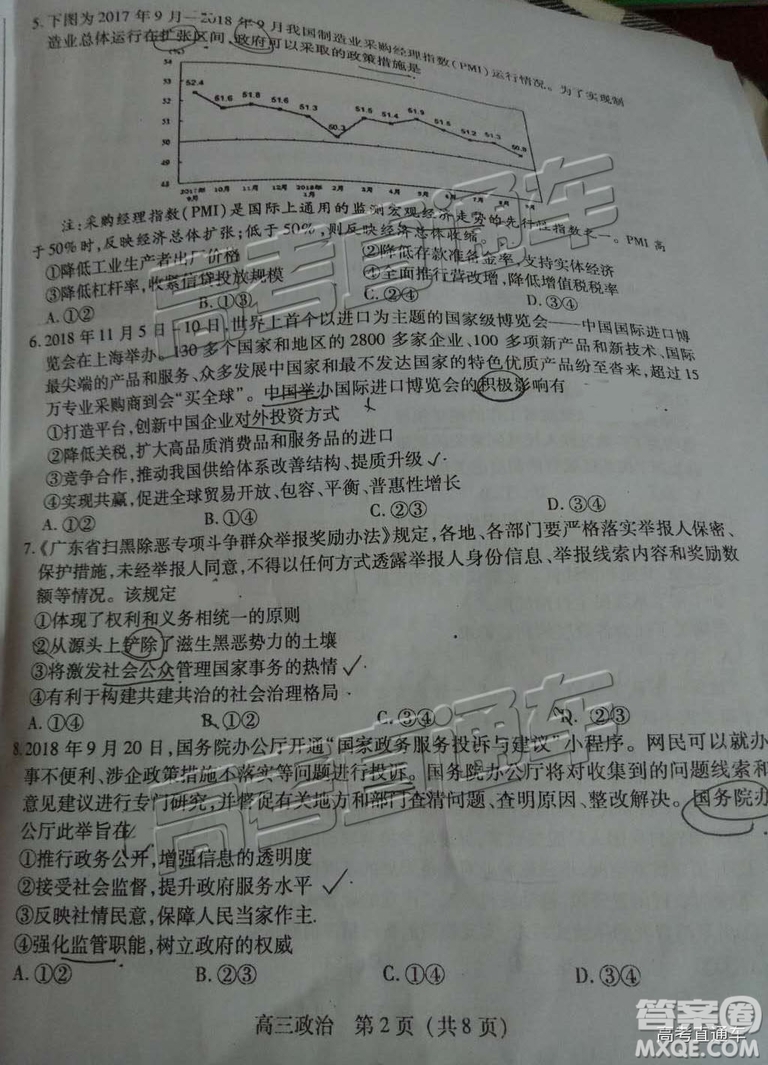 5.下图为2017年9月—2018年9月我国制造业采购经理指数(PMI)运行情况。为了实现制
造业总体运行在扩张区间,政府可以采取的政策措施是
(%)
54
52.4
51.6 51.8 51.6 51.3 50.3 51.5 51.4 51.9 51.5 51.2 51.3 50.8
52
50
48
2017年9月 10月 11月 12月 2018年1月 2月 3月 4月 5月 6月 7月 8月 9月
注:采购经理指数(PMI)是国际上通用的监测宏观经济走势的先行性指数之一。PMI高
于50%时,反映经济总体扩张;低于50%,则反映经济总体收缩。
①降低工业生产者出厂价格 ②降低存款准备金率,支持实体经济
③降低杠杆率,收紧信贷投放规模 ④全面推行营改增,降低增值税税率
A.①② B.①③ C.②④ D.③④
6.2018年11月5日-10日,世界上首个以进口为主题的国家级博览会——中国国际进口博
览会在上海举办。130多个国家和地区的2800多家企业、100多项新产品和新技术、国际
最尖端的产品和服务、众多发展中国家和最不发达国家的特色优质产品纷至沓来,超过15
万专业采购商到会“买全球”。中国举办国际进口博览会的积极影响有
①打造平台,创新中国企业对外投资方式
②降低关税,扩大高品质消费品和服务品的进口
③竞争合作,推动我国供给体系改善结构、提质升级
④实现共赢,促进全球贸易开放、包容、平衡、普惠性增长
A.①② B.①④ C.②③ D.③④
7.《广东省扫黑除恶专项斗争群众举报奖励办法》规定,各地、各部门要严格落实举报人保密、
保护措施,未经举报人同意,不得以任何方式透露举报人身份信息、举报线索内容和奖励数
额等情况。该规定
①体现了权利和义务相统一的原则
②从源头上铲除了滋生黑恶势力的土壤
③将激发社会公众管理国家事务的热情
④有利于构建共建共治的社会治理格局
A.①④ B.①② C.③④ D.②③
8.2018年9月20日,国务院办公厅开通“国家政务服务投诉与建议”小程序。网民可以就办
事不便利、涉企政策措施不落实等问题进行投诉。国务院办公厅将对收集到的问题线索和
意见建议进行专门研究,并督促有关地方和部门查清问题、查明原因、整改解决。国务院办
公厅此举旨在
①推行政务公开,增强信息的透明度
②接受社会监督,提升政府服务水平
③反映社情民意,保障人民当家作主
④强化监管职能,树立政府的权威
A.①② B.②③ C.①④ D.③④
高三政治 第2页(共8页)
高考直通车
高考直通车
答案圈
高考直通车
MXQE.COM